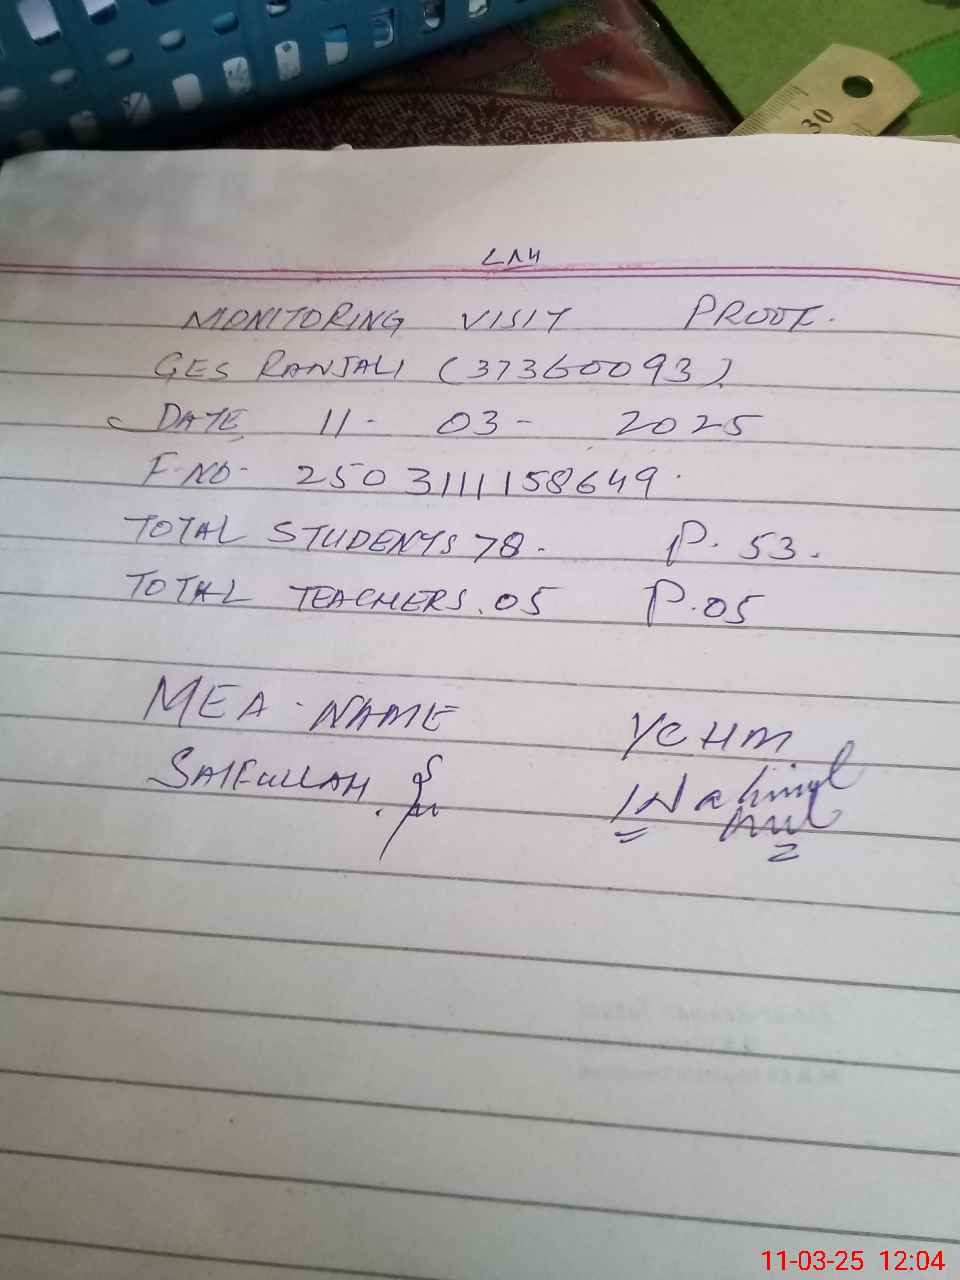 30
MONITORING VISIT PROOF.
GES RANJALI (37360093).
DATE 11- 03- 2025
F-NO- 2503111158649.
TOTAL STUDENTS 78. P. 53.
TOTAL TEACHERS. 05 P. 05
MEA-NAME
SAIFULLAH.
11-03-25 12:04